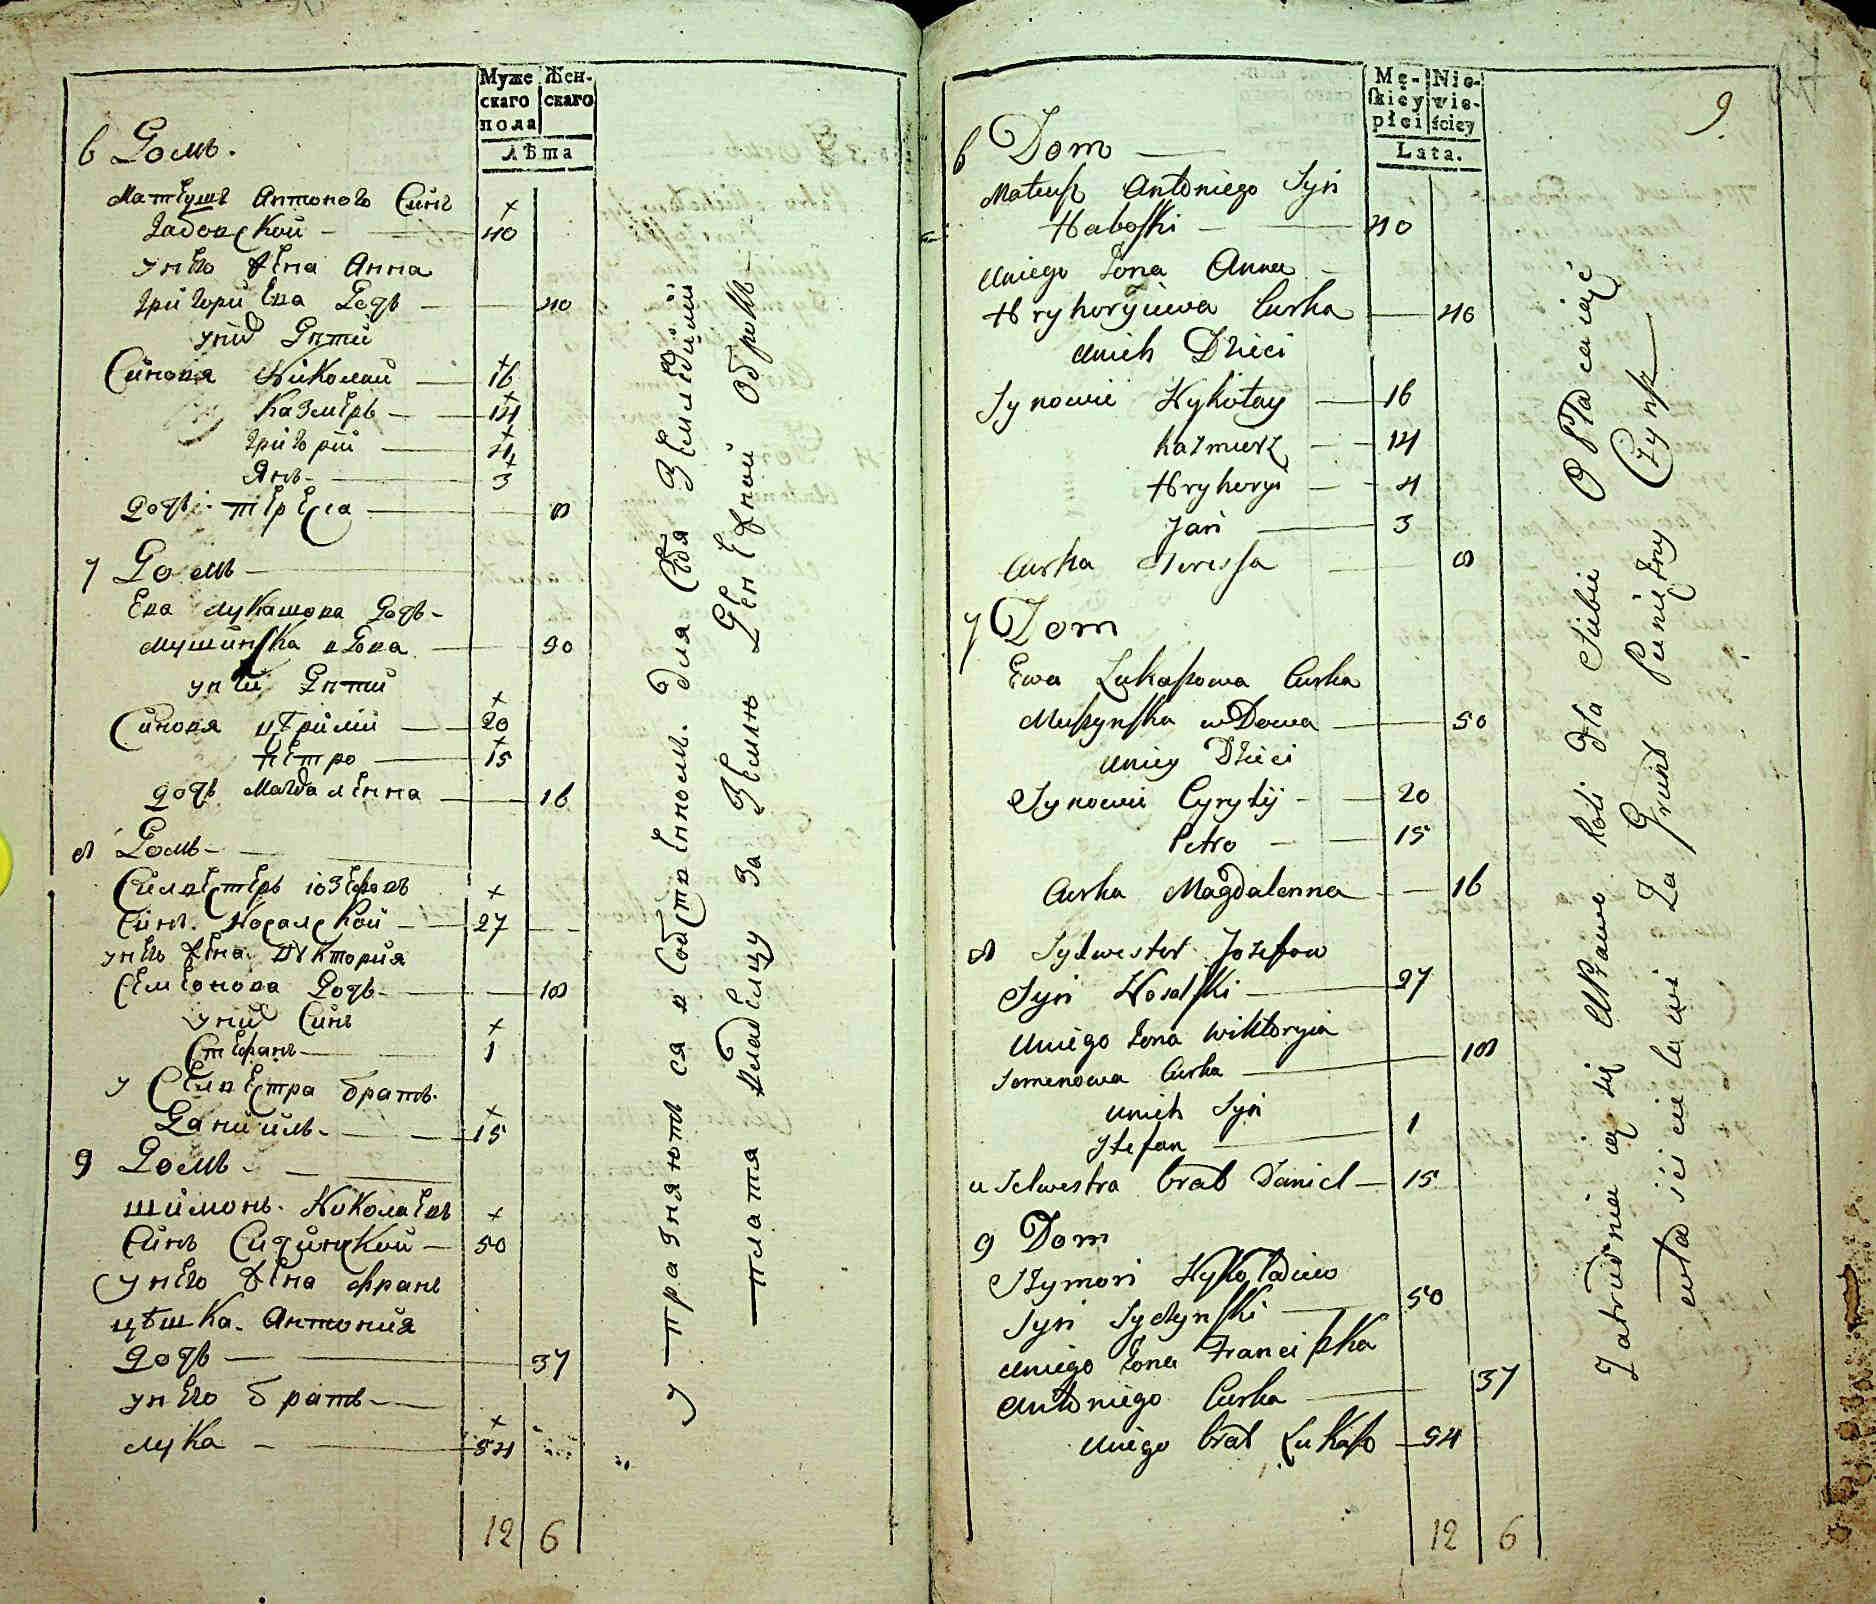 Муже
скаго
пола
Жен-
скаго
Лѣта
6 Домъ.
Матеушъ Антоновъ Синъ
Габовской 40
у него жена Анна
Григоріева Дочь 40
у нихъ Дѣти
Синовя Николай 16
Казмеръ 14
Григорій 4
Янъ 3
Дочь Тереса 8
7 Домъ
Ева Лукашова Дочь
Мушинска вдова 50
у ней Дѣти
Синовя Кирилій 20
Петро 15
дочь Магдаленна 16
8 Домъ
Силвестеръ іозефовъ
Синъ Носалской 27
у него жена Виктория
Семенова Дочь 18
у нихъ Синъ
Стефанъ 1
у Селвестра братъ
Даниилъ 15
9 Домъ
Шимонъ Николаевъ
Синъ Сичинской 50
у него жена Франъ
цѣшка Антония
Дочь 37
у него братъ
Лука 54
12 6
Упражняются в Собственном для Себя Земледѣлии
платя владелцу за Землю Денежной Оброкъ
Mę-
skiey
płci
Nie-
wie-
ściey
Lata.
9
6 Dom
Mateusz Antoniego Syn
Haboski 40
u niego Żona Anna
Hryhoryiewa Curka 40
u nich Dzieci
Synowie Nykołay 16
Kazmierz 14
Hryhory 4
Jan 3
Curka Teressa 8
7 Dom
Ewa Łukaszowa Curka
Muszynska wdowa 50
u niey Dzieci
Synowie Cyryły 20
Petro 15
Curka Magdalenna 16
8 Sylwester Jozefow
Syn Nosalski 27
u niego Żona Wiktoryia
Semenowa Curka 18
u nich Syn
Stefan 1
u Selwestra brat Daniel 15
9 Dom
Szymon Nykołaiew
Syn Syczynski 50
u niego Żona Franciszka
Antoniego Curka 37
u niego brat Łukasz 54
12 6
Zatrudniaią się Uprawą Roli dla Siebie Opłacaiąc
właścicielowi Za Grunt Pieniężny Czynsz